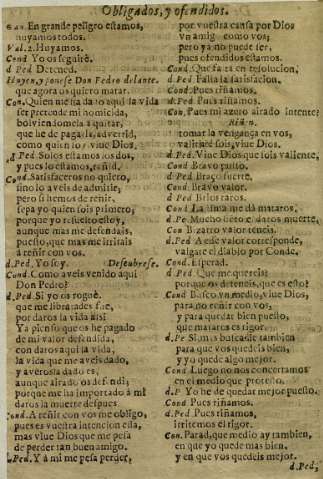 Obligados, y ofendidos.
En grande peligro estamos,
huyamos todos.
Val. 2. Huyamos.
Cond. Yo os seguirè.
d. Ped. Detened.
Huyen, y ponese Don Pedro delante.
que agora os quiero matar.
Con. Quien me ha dado aqui la vida
ser pretende mi homicida,
bolviendomela a quitar,
que he de pagarle, advertid,
como quien soy vive Dios.
d. Ped. Solos estamos los dos,
y pues lo estamos, reñid.
Con. Satisfaceros no quiero,
sino lo aveis de admitir,
pero si hemos de reñir,
sepa yo quien sois primero,
porque yo resuelto estoy,
aunque mas me defendais,
puesto, que mas me irritais
à reñir con vos.
d. Ped. Yo soy. Descubrese.
Cond. Como aveis venido aqui
Don Pedro?
d. Ped. Si yo os roguè,
que me librassedes fue,
por daros la vida assi
Ya pienso que os he pagado
de mi valor defendida,
con daros aqui la vida,
la vida que me aveis dado,
y averosla dado es,
aunque airado os ofendi;
porque me ha importado à mi
daros la muerte despues.
Cond. A reñir con vos me obligo,
pues es vuestra intencion essa,
mas vive Dios que me pesa
de perder tan buen amigo.
d. Ped. Y à mi me pesa perder,
por vuestra causa por Dios
un amigo como vos;
pero ya no puede ser,
pues ofendidos estamos.
Cond. Que esta es resolucion.
d. Ped. Falta la satisfacion.
Cond. Pues riñamos.
d. Ped. Pues riñamos.
Con. Pues mi azero airado intente
Riñen.
tomar la vengança en vos,
valiente sois, vive Dios.
d. Ped. Vive Dios que sois valiente,
Cond. Bravo pulso
d. Ped. Braço fuerte.
Cond. Bravo valor.
d. Ped. Brios raros.
Con. Lastima me dà mataros.
d. Pe. Mucho siento daros muerte,
Con. Bizarro valor teneis.
d. Ped. A esse valor corresponde,
valgate el diablo por Conde.
Cond. Esperad.
d. Ped. Que me quereis?
porque os deteneis, que es esto?
Cond. Busco un medio, vive Dios,
para no reñir con vos,
y para quedar bien puesto,
que mataros es rigor.
d. Pe. Si, mas buscadle tambien
para que vos quedeis bien,
y yo quede algo mejor.
Cond. Luego no nos concertamos
en el medio que protesto.
d. P. Yo he de quedar mejor puesto.
Cond. Pues riñamos.
d. Ped. Pues riñamos,
irritemos el rigor.
Con. Parad, que medio ay tambien,
en que yo quede mas bien,
y en que vos quedeis mejor.
d. Ped,